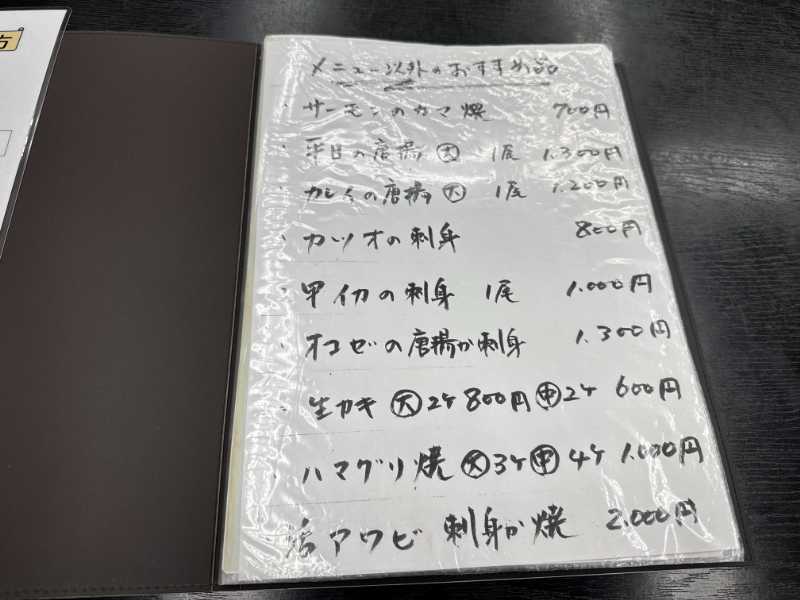 方
メニュー以外のおすすめ品
・サーモンのカマ焼 700円
・平目の唐揚 大 1尾 1.300円
・カレイの唐揚 大 1尾 1.200円
・カツオの刺身 800円
・甲イカの刺身 1尾 1.000円
・オコゼの唐揚か刺身 1.300円
・生カキ 大 2ケ 800円 中 2ケ 600円
・ハマグリ焼 大 3ケ 中 4ケ 1.000円
活アワビ 刺身か焼 2.000円